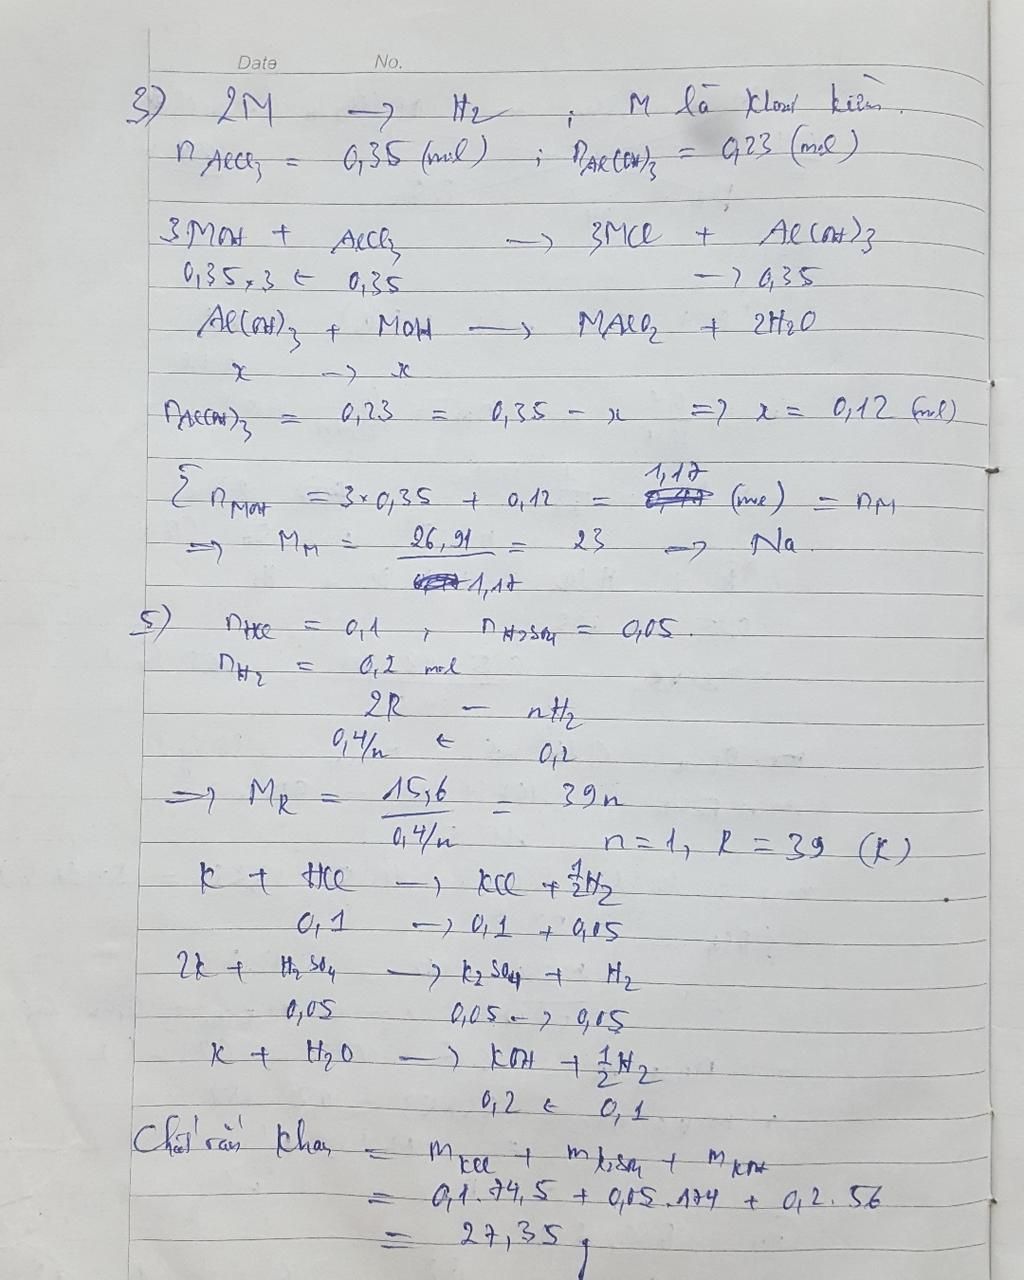 Date No.
3) 2M → H2 ; M là kloại kiềm.
nAlCl3 = 0,35 (mol) ; nAl(OH)3 = 0,23 (mol)
3MOH + AlCl3 → 3MCl + Al(OH)3
0,35×3 ← 0,35 → 0,35
Al(OH)3 + MOH → MAlO2 + 2H2O
x → x
nAl(OH)3 = 0,23 = 0,35 - x => x = 0,12 (mol)
Σ nMOH = 3×0,35 + 0,12 = 1,17 (mol) = nM
=> MM = 26,91 / 1,17 = 23 → Na.
5) nHCl = 0,1 , nH2SO4 = 0,05.
nH2 = 0,2 mol
2R — nH2
0,4/n ← 0,2
=> MR = 15,6 / 0,4/n = 39n
n=1, R = 39 (K)
K + HCl → KCl + 1/2H2
0,1 → 0,1 + 0,05
2K + H2SO4 → K2SO4 + H2
0,05 0,05 → 0,05
K + H2O → KOH + 1/2H2
0,2 ← 0,1
Chất rắn khan = mKCl + mK2SO4 + mKOH
= 0,1.74,5 + 0,05.174 + 0,2.56
= 27,35 g